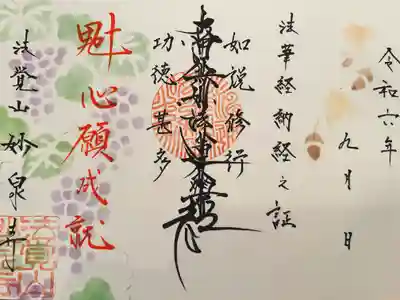 令和六年
九月 日
法華経納経之証
如説修行
南無妙法蓮華経
功徳甚多
心願成就
法覚山妙泉寺